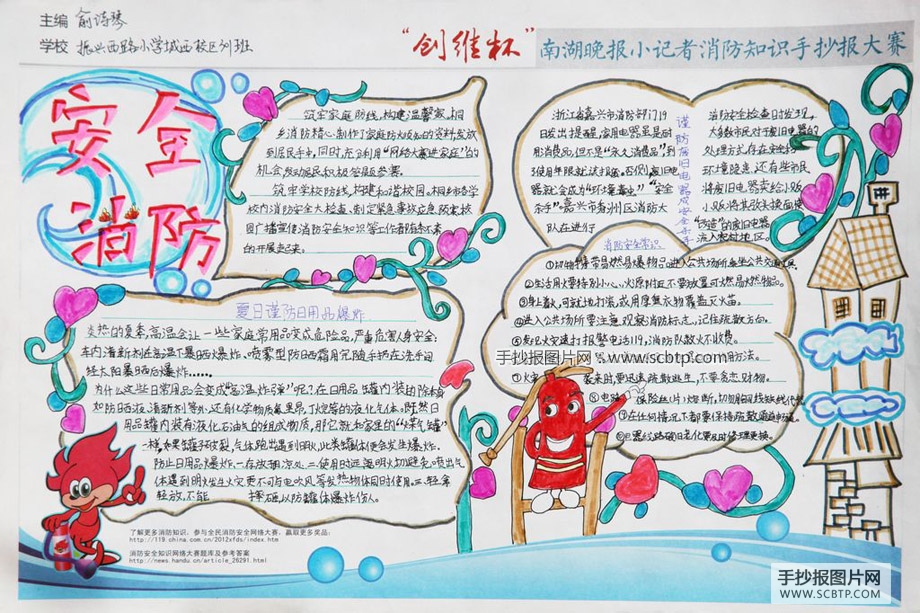 主编 俞诗琴
学校 振兴西路小学城西校区
“创维杯”南湖晚报小记者消防知识手抄报大赛
安全
消防
筑牢家庭防线,构建温馨家,桐
到居民手中,同时,充分利用“网络大赛进家庭”的
机会发动居民积极答题参赛。
筑牢学校防线,构建和谐校园。桐乡市各学
校内消防安全大检查、制定紧急事故应急预案、校
园广播宣传消防安全知识等工作都陆续不紊
的开展起来。
夏日谨防日用品爆炸
炎热的夏季,高温会让一些家庭常用品变成危险品,严重危害人身安全:
车内清新剂在高温下暴晒火爆炸、喷雾型防晒霜用完随手扔在洗手间
经太阳暴晒后爆炸……
为什么这些日常用品会变成“高温炸弹”呢?在日用品
如防晒液、清新剂等外,还有化学物质氟里昂、丁烷等的液化气体。既然日
用品罐内装有液化石油气的组成物质,那它就和家里的“煤气罐”
一样,如果罐子破裂,气体跑出遇到明火,此类罐体便会发生爆炸。
防止日用品爆炸,一在放阴凉处,二使用时远离明火切避免喷出气
体遇到明火发生火灾更不可与电吹风等发热物体同时使用。三轻拿
轻放,不能 撞砸以防罐体爆炸伤人。
浙江省嘉兴市消防部门19
日发出提醒,家用电器虽是耐
用消费品,但不是“永久消费品”,到
了使用年限就该扔掉。否则废旧电
器就会成为“环境毒虫”“安全
杀手”。嘉兴市秀洲区消防大
队在进行
谨防废旧电器成安全杀手
消防安全检查时发现,
大多数市民对于废旧电器的
处理方式存在安全和
环境隐患,还有些市民
将废旧电器卖给小贩,
小贩将其改头换面后
流入农村地区。
消防安全常识
①切勿携带易燃易爆物品进入公共场所乘坐公共交通工具
②生活用火要特别小心,火源附近不要放置可燃易燃物品。
③身上着火,可就地打滚,或用厚重衣物覆盖灭火苗。
④进入公共场所要注意观察消防标志,记住疏散方向。
⑤发现火灾速打报警电话119,消防队救火不收费。
⑥ 用方法。
⑦火灾 袭来时,要迅速疏散逃生,不要贪恋财物。
⑧电路 保险丝(片)熔断,切勿用铜线铁线代替
⑨在任何情况下都要保持疏散通道畅通。
手抄报图片网 www.scbtp.com
了解更多消防知识,参与全民消防安全网络大赛,赢取更多奖品:
http://119.china.com.cn/2012xfds/index.htm
消防安全知识网络大赛题库及参考答案
http://news.handu.cn/article_26291.html
手抄报图片网
WWW.SCBTP.COM